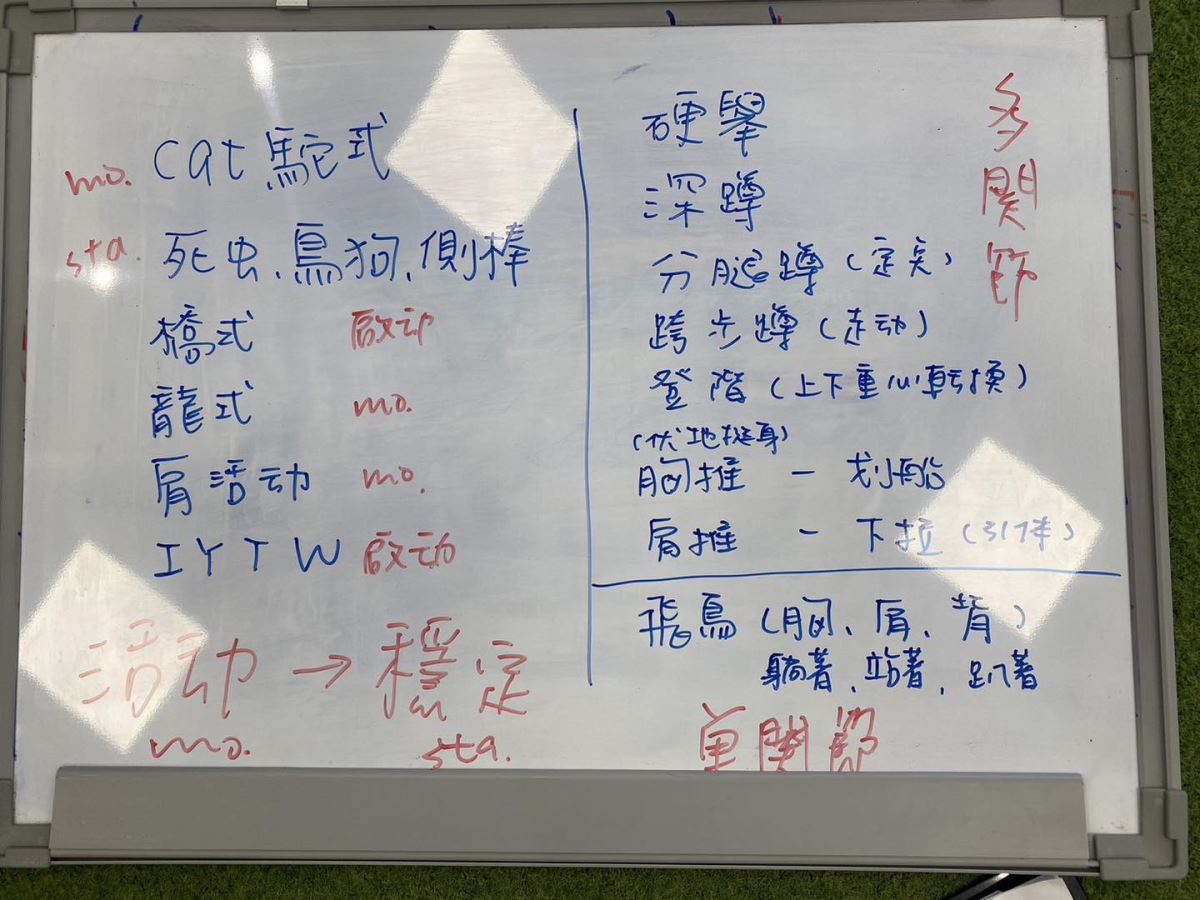 mo. cat駝式
sta. 死虫、鳥狗、側棒
橋式 啟动
龍式 mo.
肩活动 mo.
IYTW 啟动
活动→穩定
mo. sta.
多關節
硬舉
深蹲
分腿蹲(定点)
跨步蹲(走动)
登階(上下重心転換)
(伏地挺身)
胸推 - 划船
肩推 - 下拉(引体)
飛鳥(胸、肩、背)
躺著、站著、趴著
単関節